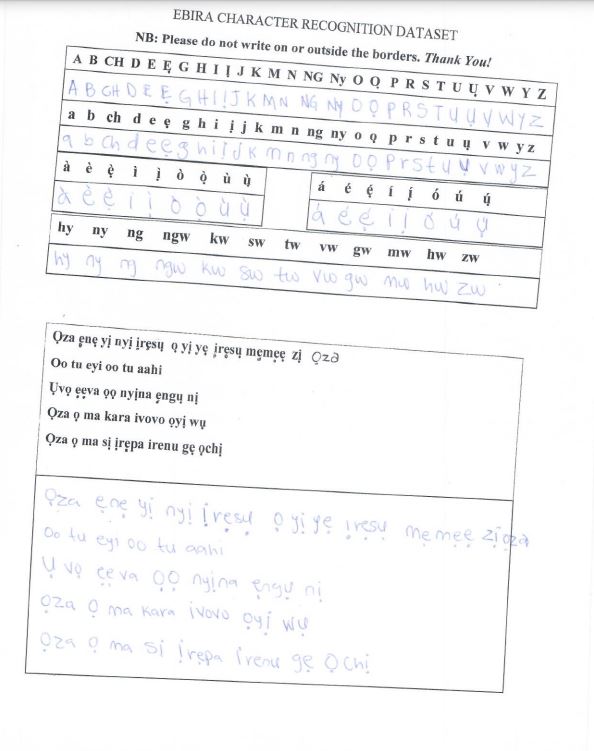 EBIRA CHARACTER RECOGNITION DATASET
NB: Please do not write on or outside the borders. Thank You!
A B CH D E Ẹ G H I Ị J K M N NG Ny O Ọ P R S T U Ụ V W Y Z
A B CH D E Ẹ G H I Ị J K M N NG Ny O Ọ P R S T U Ụ V W Y Z
a b ch d e ẹ g h i ị j k m n ng ny o ọ p r s t u ụ v w y z
a b ch d e ẹ g h i ị j k m n ng ny o ọ p r s t u ụ v w y z
à è ẹ̀ ì ị̀ ò ọ̀ ù ụ̀
à è ẹ̀ ì ị̀ ò ọ̀ ù ụ̀
á é ẹ́ í ị́ ó ú ụ́
á é ẹ́ í ị́ ó ú ụ́
hy ny ng ngw kw sw tw vw gw mw hw zw
hy ny ng ngw kw sw tw vw gw mw hw zw
Ọza ẹnẹ yị nyị ịrẹsụ ọ yị yẹ ịrẹsụ mẹmẹẹ zị ọzà
Oo tu eyi oo tu aahi
Ụvọ ẹẹva ọọ nyịna ẹngụ nị
Ọza ọ ma kara ivovo ọyị wụ
Ọza ọ ma sị ịrẹpa irenu gẹ ọchị
Ọza ẹnẹ yị nyị ịrẹsụ ọ yị yẹ ịrẹsụ mẹ mẹẹ zị ọzà
Oo tu eyi oo tu aahi
Ụ vọ ẹẹva ọọ nyịna ẹngụ nị
Ọza ọ ma kara ivovo ọyị wụ
Ọza ọ ma si ịrẹpa irenu gẹ ọchị